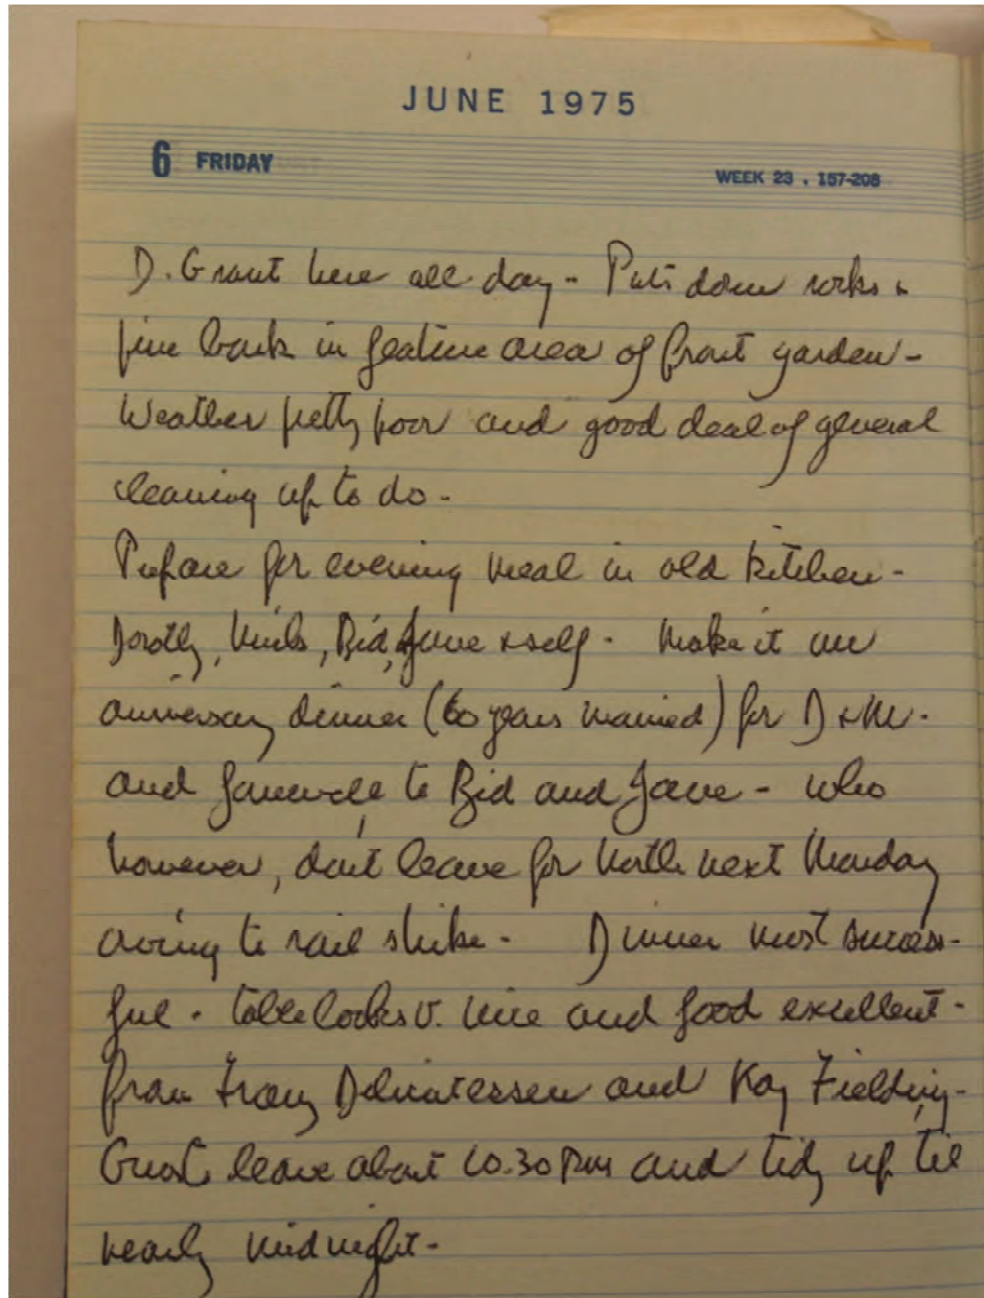 JUNE 1975
6 FRIDAY
WEEK 23 . 157-208
D. Grant here all day - Puts down rocks &
pine bark in feature area of front garden -
Weather pretty poor and good deal of general
cleaning up to do -
Prepare for evening meal in old kitchen -
Dorothy, Bid, Jane & self - Make it an
anniversary dinner ( years married) for D & M -
and farewell to Bid and Jane - who
however, don't leave for North next Monday
owing to rail strike - Dinner most success-
ful - table looks v. nice and food excellent -
from Delicatessen and Kay Fielding -
Guests leave about 10.30 pm and tidy up til
nearly midnight -